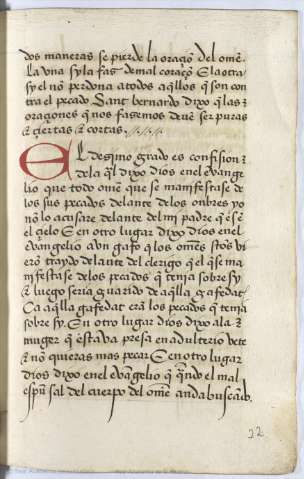 dos maneras se pierde la oraçoͣn del ome̅.
La vna sy la faz de mal coraço̅ E la otra
sy el no̅ perdona a todos aq̅llos q̅ son con
tra el pecado. Sant bernardo dixo q̅ las
oraçones q̅ nos fasemos deue̅ ser puras
⁊ çiertas ⁊ cortas.
EL desimo grado es confision ⁊
dela q̅l dixo dios enel euange
lio que todo ome̅ que se manifestase de
los sus pecados delante delos onbres yo
no̅ lo acusare delante del mi padre q̅ es e̅
el çielo E en otro lugar dixo dios enel
euangelio a vn gafo q̅ los ome̅s
ero̅ traydo delante del clerigo q̅ el q̅ se ma
nifestase delos pecados q̅ tenia sobre sy
⁊ luego seria guarido de aq̅lla gafedat
Ca aq̅lla gafedat era̅ los pecados q̅ tenia
sobre sy. E en otro lugar dios dixo a la
muger q̅ estava presa en adulterio vete
⁊ no̅ quieras mas pecar E en otro lugar
dios dixo enel euangelio q̅ q̅ndo el mal
esp̅u sal del cuerpo del ome̅ anda busca̅do.
22